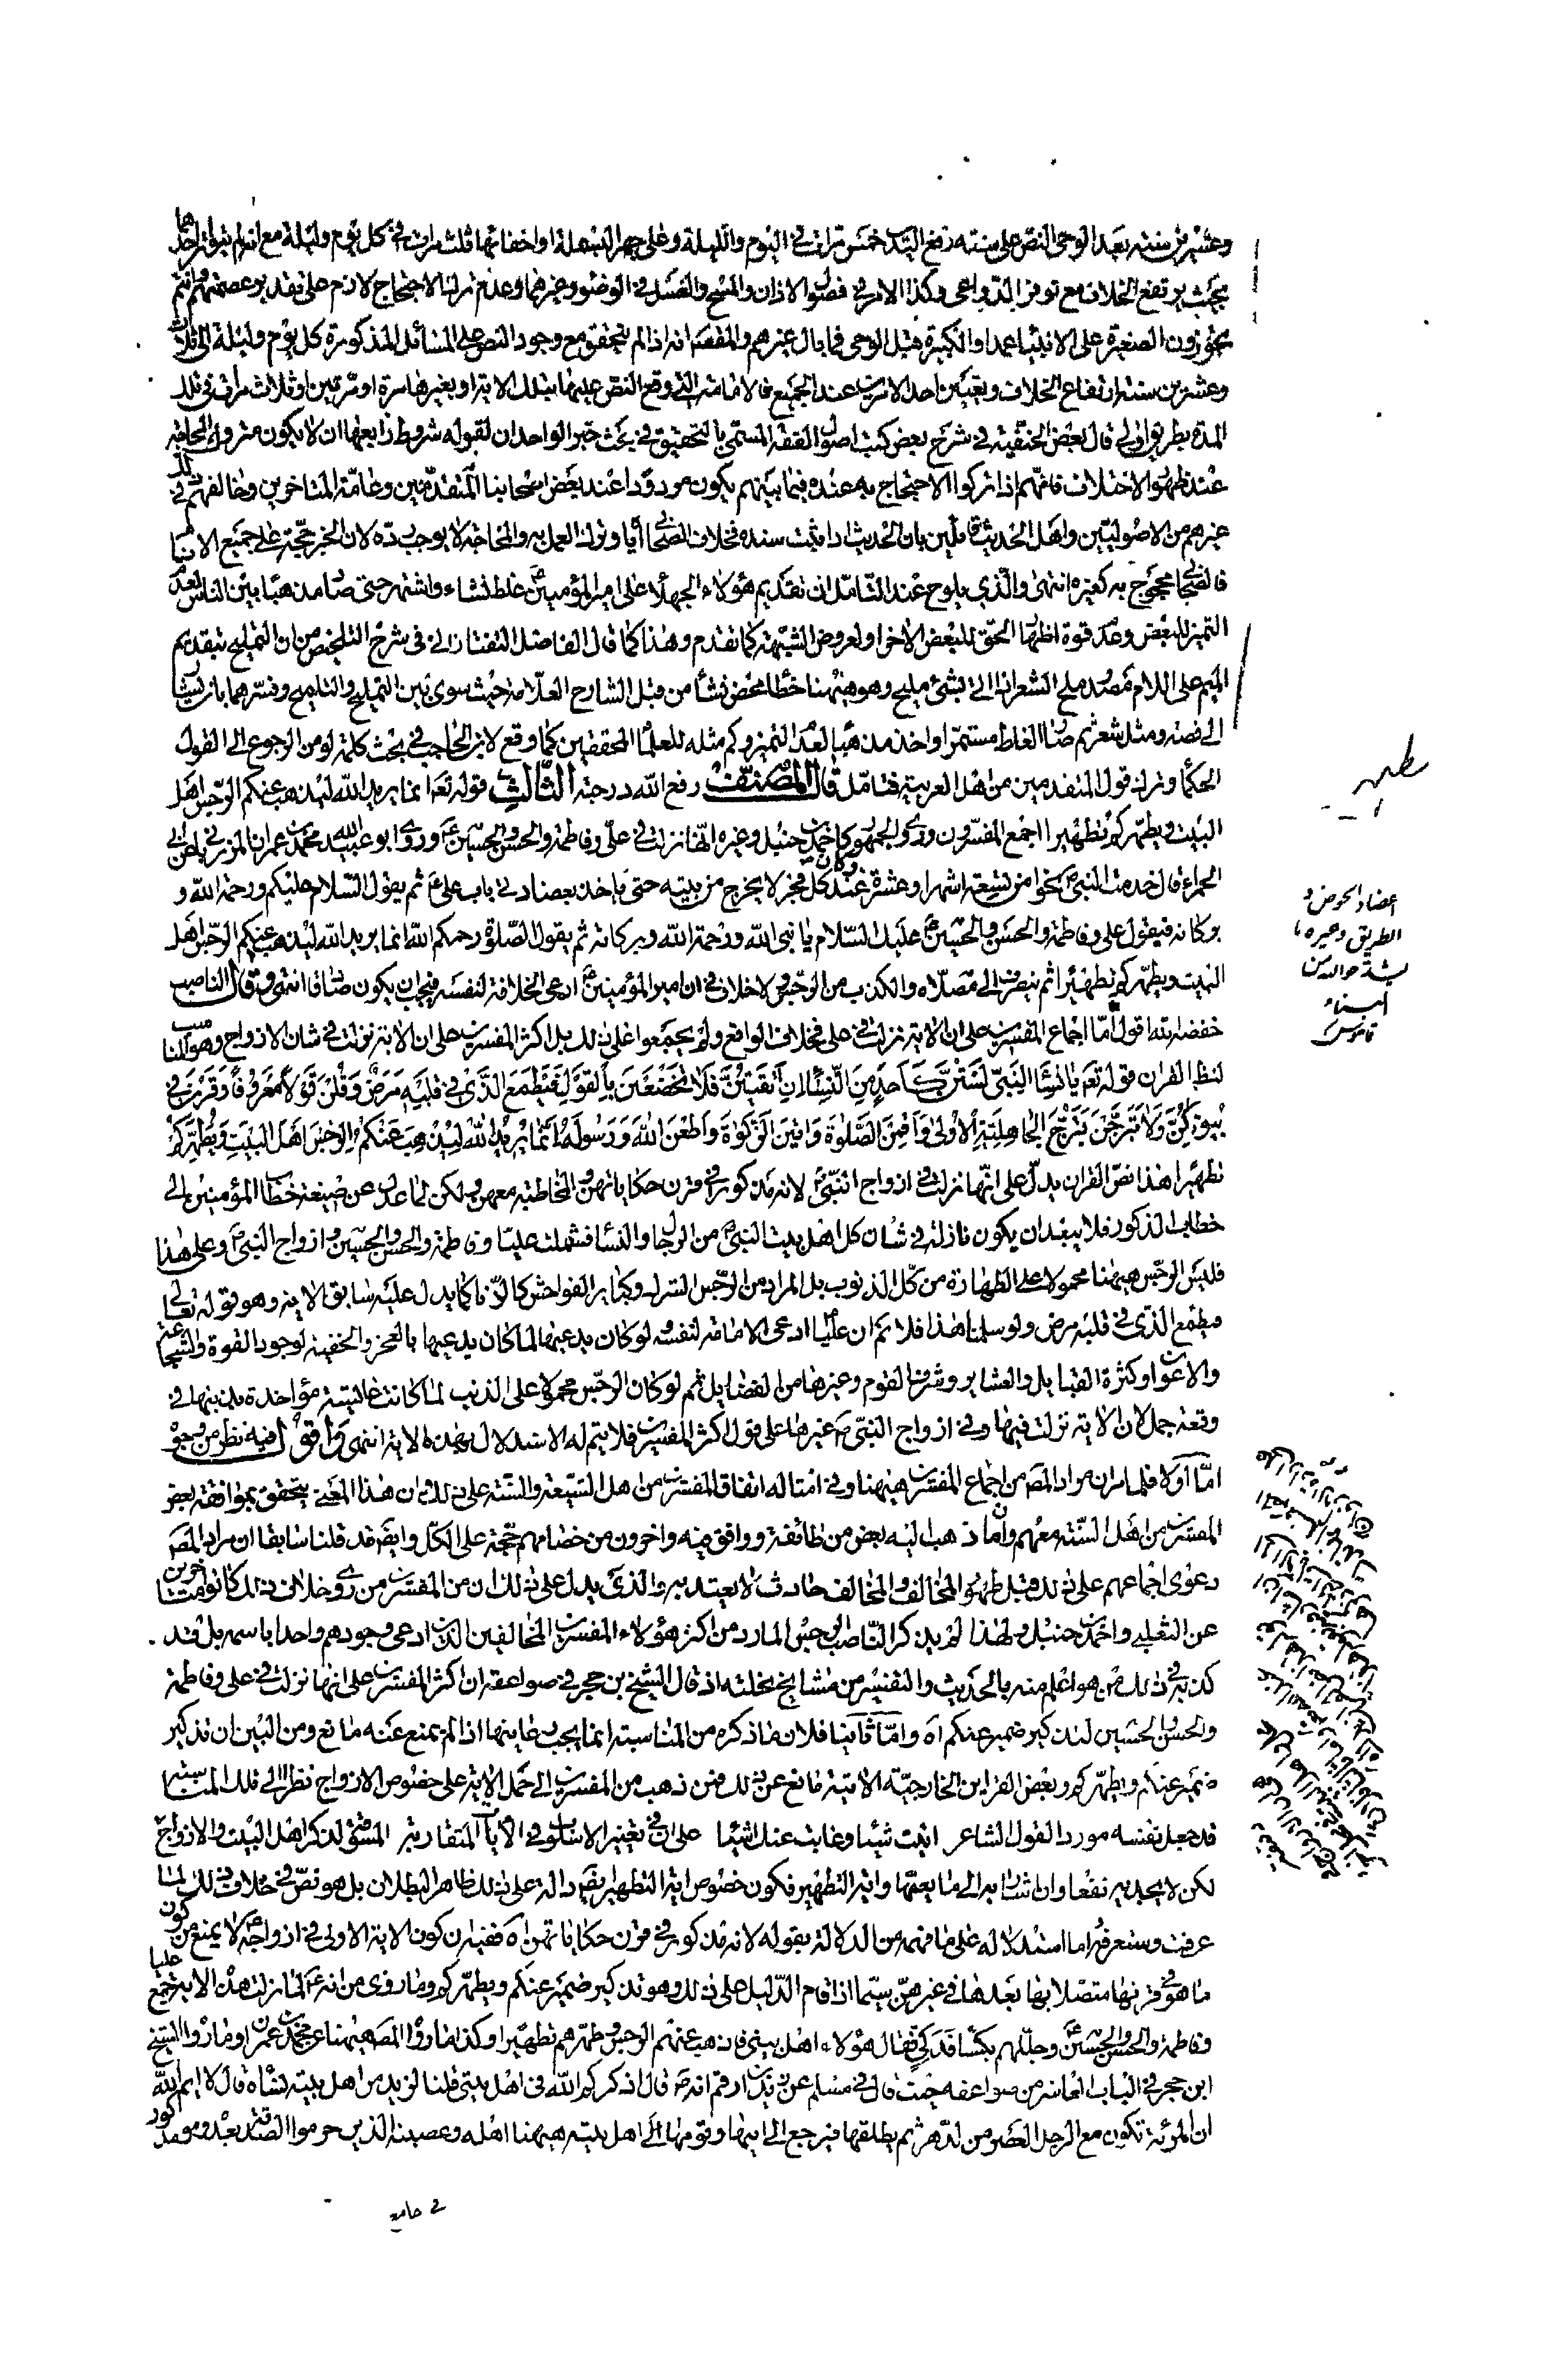 وعشرين سنة بعد الوحي النص على سنته رفع اليد خمس مرات في اليوم والليلة وعلى جهر البسملة او اخفائها ثلث مرات في كل يوم وليلة مع انه لم يتواتر احدهما
بحيث يرتفع الخلاف مع توفر الدواعي وكذا الامر في فصول الاذان والمسح والغسل في الوضوء وغيرهما وعدم ترك الاحتجاج لازم على تقدير عصمتهم وانتم
تجوزون الصغيرة على الانبياء عمدا والكبيرة قبل الوحي فما بال غيرهم والمقصد انه اذا لم يتحقق مع وجود النص على المسائل المذكورة كل يوم وليلة الى ثلاث
وعشرين سنة ارتفاع الخلاف وتعيين احد الامرين عند الجميع فالامامة التي وقع النص عليها بتلك الاية او بغيرها مرة او مرتين او ثلاث مرات في تلك
المدة بطريق اولى قال بعض الحنفية في شرح بعض كتب اصول الفقه المسمى بالتحقيق في بحث خبر الواحد ان لقبوله شروط رابعها ان لا يكون متروك المحاجة
عند ظهور الاختلاف فانهم اذا تركوا الاحتجاج به عنده فيما بينهم يكون مردودا عند بعض اصحابنا المتقدمين وعامة المتاخرين وخالفهم في ذلك
غيرهم من الاصوليين واهل الحديث قائلين بان الحديث اذا ثبت سنده فخلاف الصحابي اياه وترك العمل به والمحاجة لا يوجب رده لان الخبر حجة على جميع الامة
فالصحابي محجوج به كغيره انتهى والذي يلوح عند التامل ان تقديم هؤلاء الجهلاء على امير المؤمنين غلط نشاء واشتهر حتى صار مذهبا بين الناس لعدم
التميز للبعض وعدم قوة اظهار الحق للبعض الاخر او لعروض الشبهة كما تقدم وهذا كما قال الفاضل التفتازاني في شرح التلخيص من ان التمليح بتقديم
الميم على اللام مصدر ملح الشعر اذا اتى بشئ مليح وهو ههنا خطأ محض نشأ من قبل الشارح العلامة حيث سوى بين التمليح والتلميح وفسرهما بان يشار
الى قصة ومثل شعر ثم صار الغلط مستمرا واخذ مذهبا لعدم التميز وكم مثله للعلماء المحققين كما وقع لابن الحاجب في بحث كلمة لو من الرجوع الى القول
الحكماء وترك قول المتقدمين من اهل العربية فتامل قال المصنف رفع الله درجته الثالث قوله تعالى انما يريد الله ليذهب عنكم الرجس اهل
البيت ويطهركم تطهيرا اجمع المفسرون وروى الجمهور كاحمد بن حنبل وغيره انها نزلت في علي وفاطمة والحسن والحسين وروى ابو عبد الله محمد بن عمران المرزباني عن ابي
الحمراء قال خدمت النبي نحوا من تسعة اشهر او عشرة عند كل فجر لا يخرج من بيته حتى ياخذ بعضادتي باب علي ثم يقول السلام عليكم ورحمة الله و
بركاته فيقول علي وفاطمة والحسن والحسين عليك السلام يا نبي الله ورحمة الله وبركاته ثم يقول الصلوة رحمكم الله انما يريد الله ليذهب عنكم الرجس اهل
البيت ويطهركم تطهيرا ثم ينصرف الى مصلاه والكذب من الرجس ولا خلاف في ان امير المؤمنين ادعى الخلافة لنفسه فيجب ان يكون صادقا انتهى وقال الناصب
خفضه الله اقول اما اجماع المفسرين على ان الاية نزلت في علي فخلاف الواقع ولم يجمعوا على ذلك بل اكثر المفسرين على ان الاية نزلت في شان الازواج وهو المناسب
لنظم القران قوله تعالى يا نساء النبي لستن كاحد من النساء ان اتقيتن فلا تخضعن بالقول فيطمع الذي في قلبه مرض وقلن قولا معروفا وقرن في
بيوتكن ولا تبرجن تبرج الجاهلية الاولى واقمن الصلوة واتين الزكوة واطعن الله ورسوله انما يريد الله ليذهب عنكم الرجس اهل البيت ويطهركم
تطهيرا هذا نص القران يدل على انها نزلت في ازواج النبي لانه مذكور في قرن حكاياتهن والمخاطبة معهن ولكن لما عدل عن صيغة خطاب المؤمنين الى
خطاب الذكور فلا يبعد ان يكون نازلة في شان كل اهل بيت النبي من الرجال والنساء فشملت عليا وفاطمة والحسن والحسين وازواج النبي وعلى هذا
فليس الرجس ههنا محمولا على الطهارة من كل الذنوب بل المراد من الرجس الشرك وكباير الفواحش كالزنا كما يدل عليه سابق الاية وهو قوله تعالى
فيطمع الذي في قلبه مرض ولو سلمنا هذا فلا نم ان عليا ادعى الامامة لنفسه لو كان يدعيها لما كان يدعيها بالعجز والخفية لوجود القوة والشجاعة
والاعوان وكثرة القبايل والعشاير وشرف القوم وغيرها من الفضايل ثم لو كان الرجس محمولا على الذنب لما كانت عايشة مؤاخذة بذنبها في
وقعة جمل لان الاية نزلت فيها وفي ازواج النبي غيرها على قول اكثر المفسرين فلا يتم له الاستدلال بهذه الاية انتهى واقول فيه نظر من وجوه
اما اولا فلما مر ان مراد المصـ من اجماع المفسرين ههنا وفي امثاله اتفاق المفسرين من اهل الشيعة والسنة على ذلك وان هذا المعنى يتحقق بموافقة بعض
المفسرين من اهل السنة معهم وان ما ذهب اليه بعض من طائفة ووافق فيه واخرون من خصامهم حجة على الكل وايضا قد قلنا سابقا ان مراد المصـ
دعوى اجماعهم على ذلك قبل ظهور المخالف والمخالف حادث لا يعتد به والذي يدل على ذلك ان من المفسرين من روى خلاف ذلك كانوا متاخرين
عن الثعلبي واحمد بن حنبل ولهذا لم يذكر الناصب الرجس المارد من اكثر هؤلاء المفسرين المخالفين الذين ادعى وجودهم واحدا باسمه بل قد
كذبه في ذلك من هو اعلم منه بالحديث والتفسير من مشايخ نحلته اذ قال الشيخ بن حجر في صواعقه ان اكثر المفسرين على انها نزلت في علي وفاطمة
والحسن والحسين لتذكير ضمير عنكم اه واما ثانيا فلان ما ذكره من المناسبة انما يجب رعايتها اذا لم يمنع عنه مانع ومن البين ان تذكير
ضمير عنكم ويطهركم وبعض القراين الخارجية الاتية مانع عن ذلك فمن ذهب من المفسرين الى حمل الاية على خصوص الازواج نظرا الى تلك المناسبة
قد جعل نفسه موردا لقول الشاعر اثبت شيئا وغابت عنك اشيا على ان في تغيير الاسلوب في الايات المتقاربة المسوق لذكر اهل البيت والازواج
لكن لا يجديه نفعا وان اشار به الى ما يعمها واية التطهير فكون خصوص اية التطهير نصا دالة على ذلك ظاهر البطلان بل هو نص في خلاف ذلك لما
عرفت وستعرفه اما استدلاله على ما فهمه من الدلالة بقوله لانه مذكور في قرن حكاياتهن اه ففيه ان كون الاية الاولى في ازواجه لا يمنع من كون
ما هو في قرنها متصلا بها بعدها في غيرهن سيما اذا قام الدليل على ذلك وهو تذكير ضمير عنكم ويطهركم وما روى من انه لما نزلت هذه الاية جمع عليا
وفاطمة والحسن والحسين وجللهم بكساء فدكي فقال هؤلاء اهل بيتي فاذهب عنهم الرجس وطهرهم تطهيرا وكذا ما رواه المصـ ههنا عن محمد بن عمران وما رواه الشيخ
ابن حجر في الباب العاشر من صواعقه حيث قال في مسلم عن زيد بن ارقم انه قال اذكركم الله في اهل بيتي قلنا لزيد من اهل بيته نساؤه قال لا ايم الله
ان المرئة تكون مع الرجل العصر من الدهر ثم يطلقها فيرجع الى ابيها وقومها الى اهل بيته ههنا اهله وعصبته الذين حرموا الصدقة بعده ومذكور
في جامع
اعضاد الحوض و
الطريق وغيره ما
يشد حواليه من
البناء
قاموس